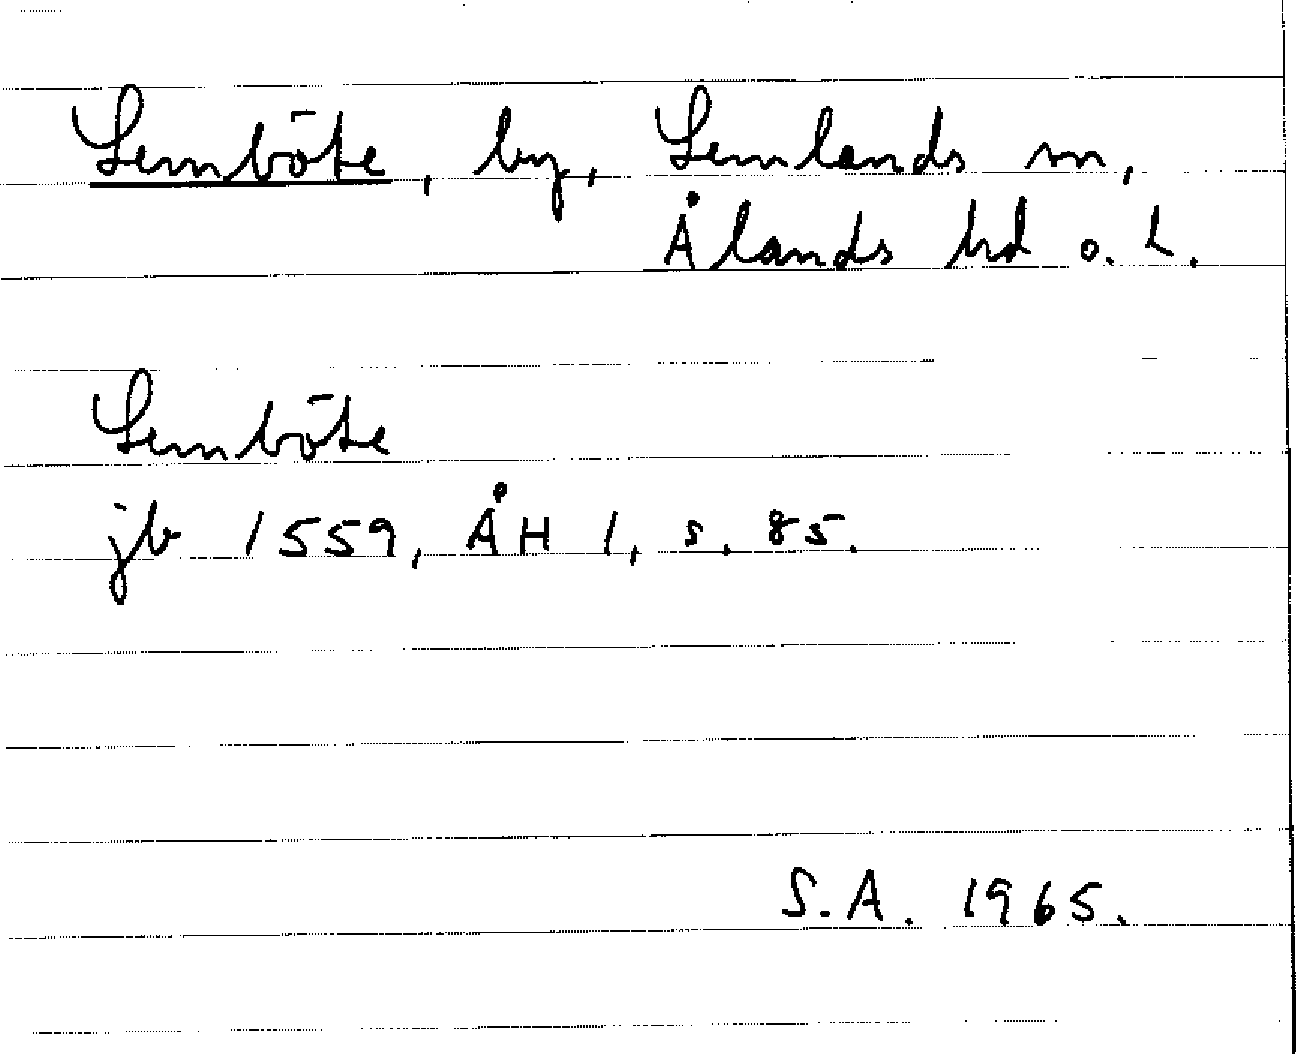 Lemböte, by, Lemlands sn,
Ålands hd o. L.
Lemböte
jb 1559, ÅH 1, s. 85.
S.A. 1965.